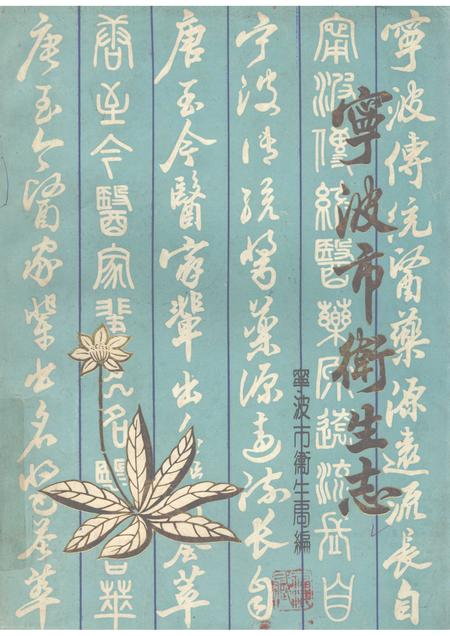 寧波傳統醫藥源遠流長自
寧波市衛生志
寧波傳統醫藥源遠流長自
寧波市衛生局編
宁波傳統醫藥源遠流長自
唐至今醫家輩出名醫薈萃
唐至今醫家輩出名醫薈萃
唐至今醫家輩出名醫薈萃